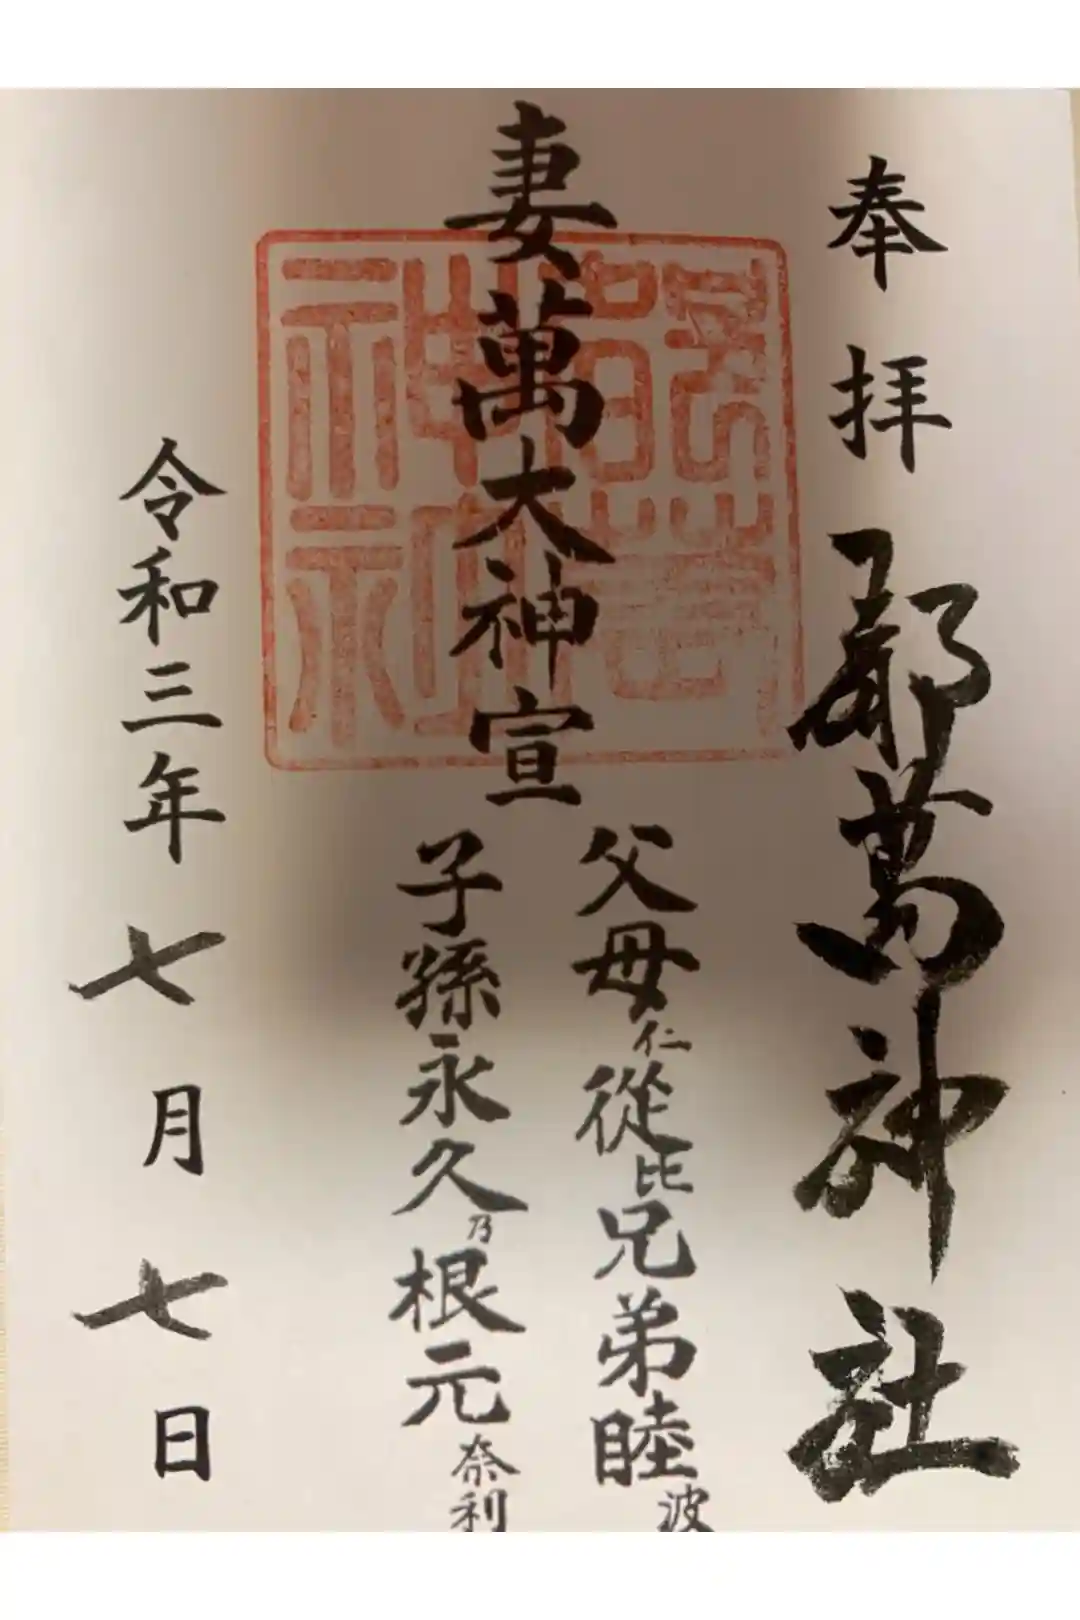 奉拝
都萬神社
妻萬大神宣
父母仁從比兄弟睦波
子孫永久乃根元奈利
令和三年七月七日